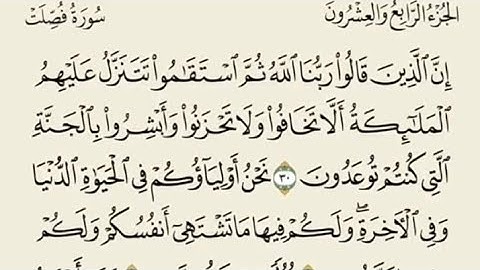 الجُزْءُ الرَّابِعُ وَالعِشْرُونَ سُورَةُ فُصِّلَتْ
إِنَّ ٱلَّذِينَ قَالُوا۟ رَبُّنَا ٱللَّهُ ثُمَّ ٱسْتَقَٰمُوا۟ تَتَنَزَّلُ عَلَيْهِمُ
ٱلْمَلَٰٓئِكَةُ أَلَّا تَخَافُوا۟ وَلَا تَحْزَنُوا۟ وَأَبْشِرُوا۟ بِٱلْجَنَّةِ
ٱلَّتِى كُنتُمْ تُوعَدُونَ ٣٠ نَحْنُ أَوْلِيَآؤُكُمْ فِى ٱلْحَيَوٰةِ ٱلدُّنْيَا
وَفِى ٱلْءَاخِرَةِ ۖ وَلَكُمْ فِيهَا مَا تَشْتَهِىٓ أَنفُسُكُمْ وَلَكُمْ